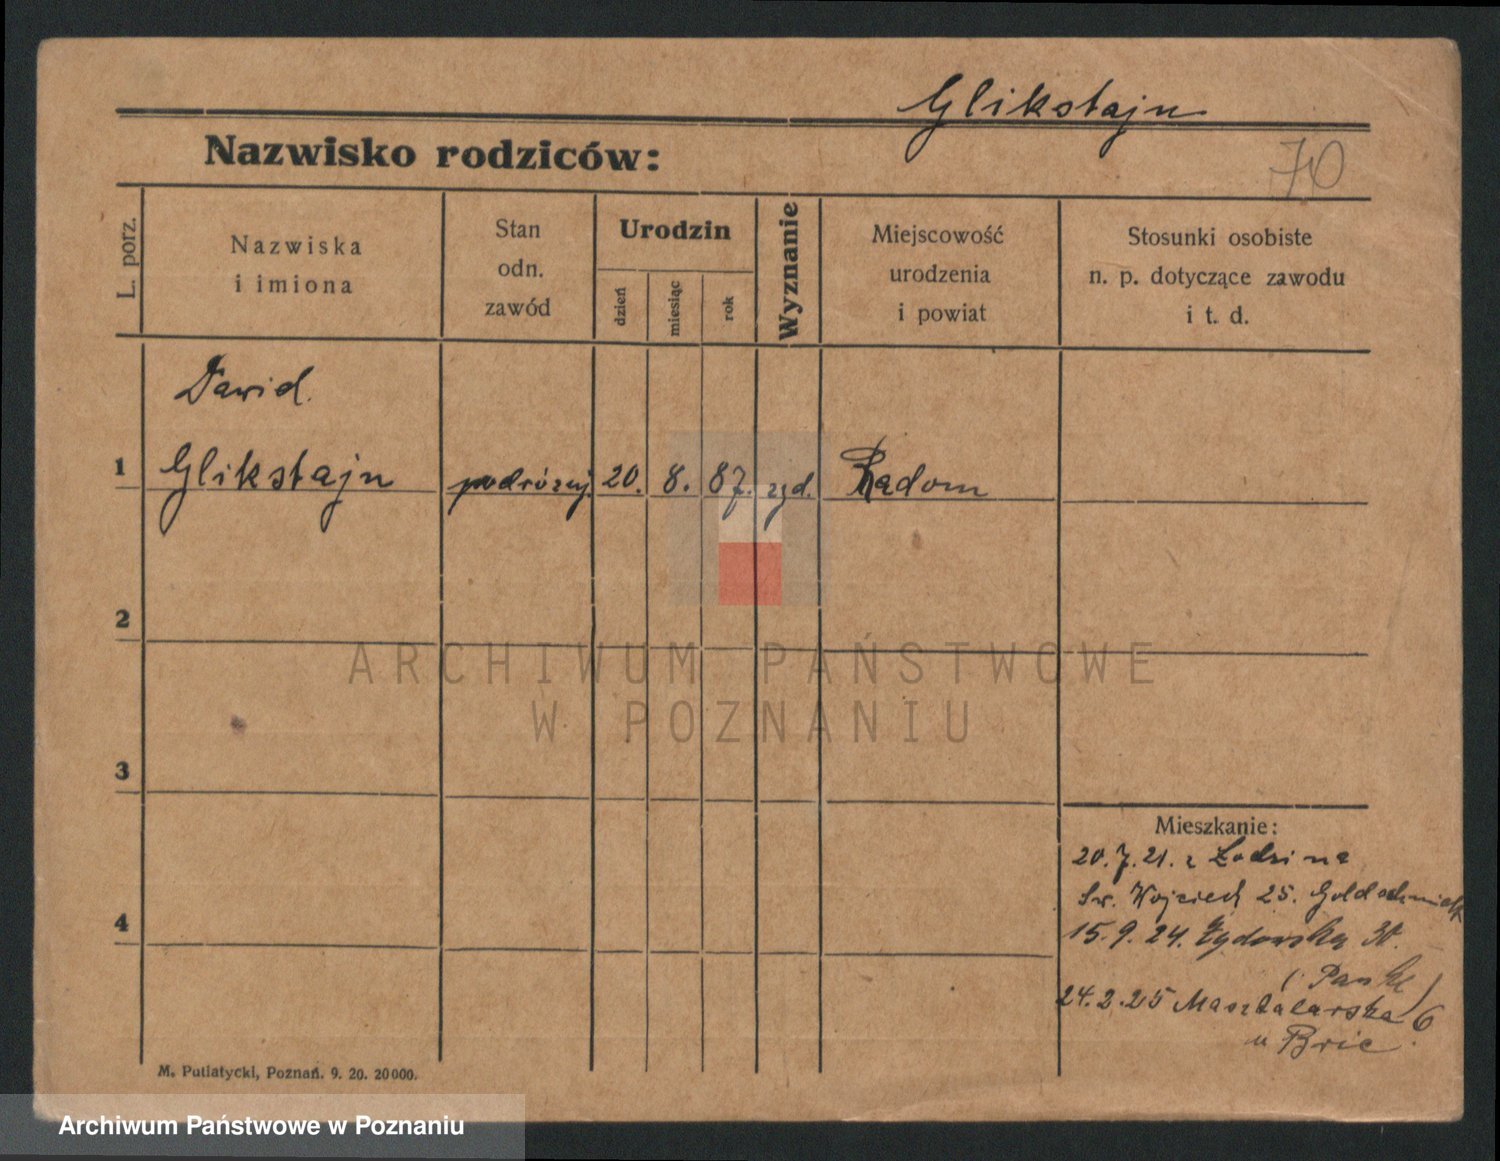 Glikstajn
Nazwisko rodziców:
70
L. porz.
Nazwiska
i imiona
Stan
odn.
zawód
Urodzin
dzień
miesiąc
rok
Wyznanie
Miejscowość
urodzenia
i powiat
Stosunki osobiste
n. p. dotyczące zawodu
i t. d.
Dawid.
1 Glikstajn podróżuj. 20. 8. 87. żyd. Radom
2
ARCHIWUM PAŃSTWOWE
W POZNANIU
3
Mieszkanie:
20.7.21. z Łodzi na
Św. Wojciech 25. Goldschmidt
4
15.9.24. Żydowska 30.
24.2.25 Masztalarska 6
u Bric
M. Putiatycki, Poznań. 9. 20. 20000.
Archiwum Państwowe w Poznaniu